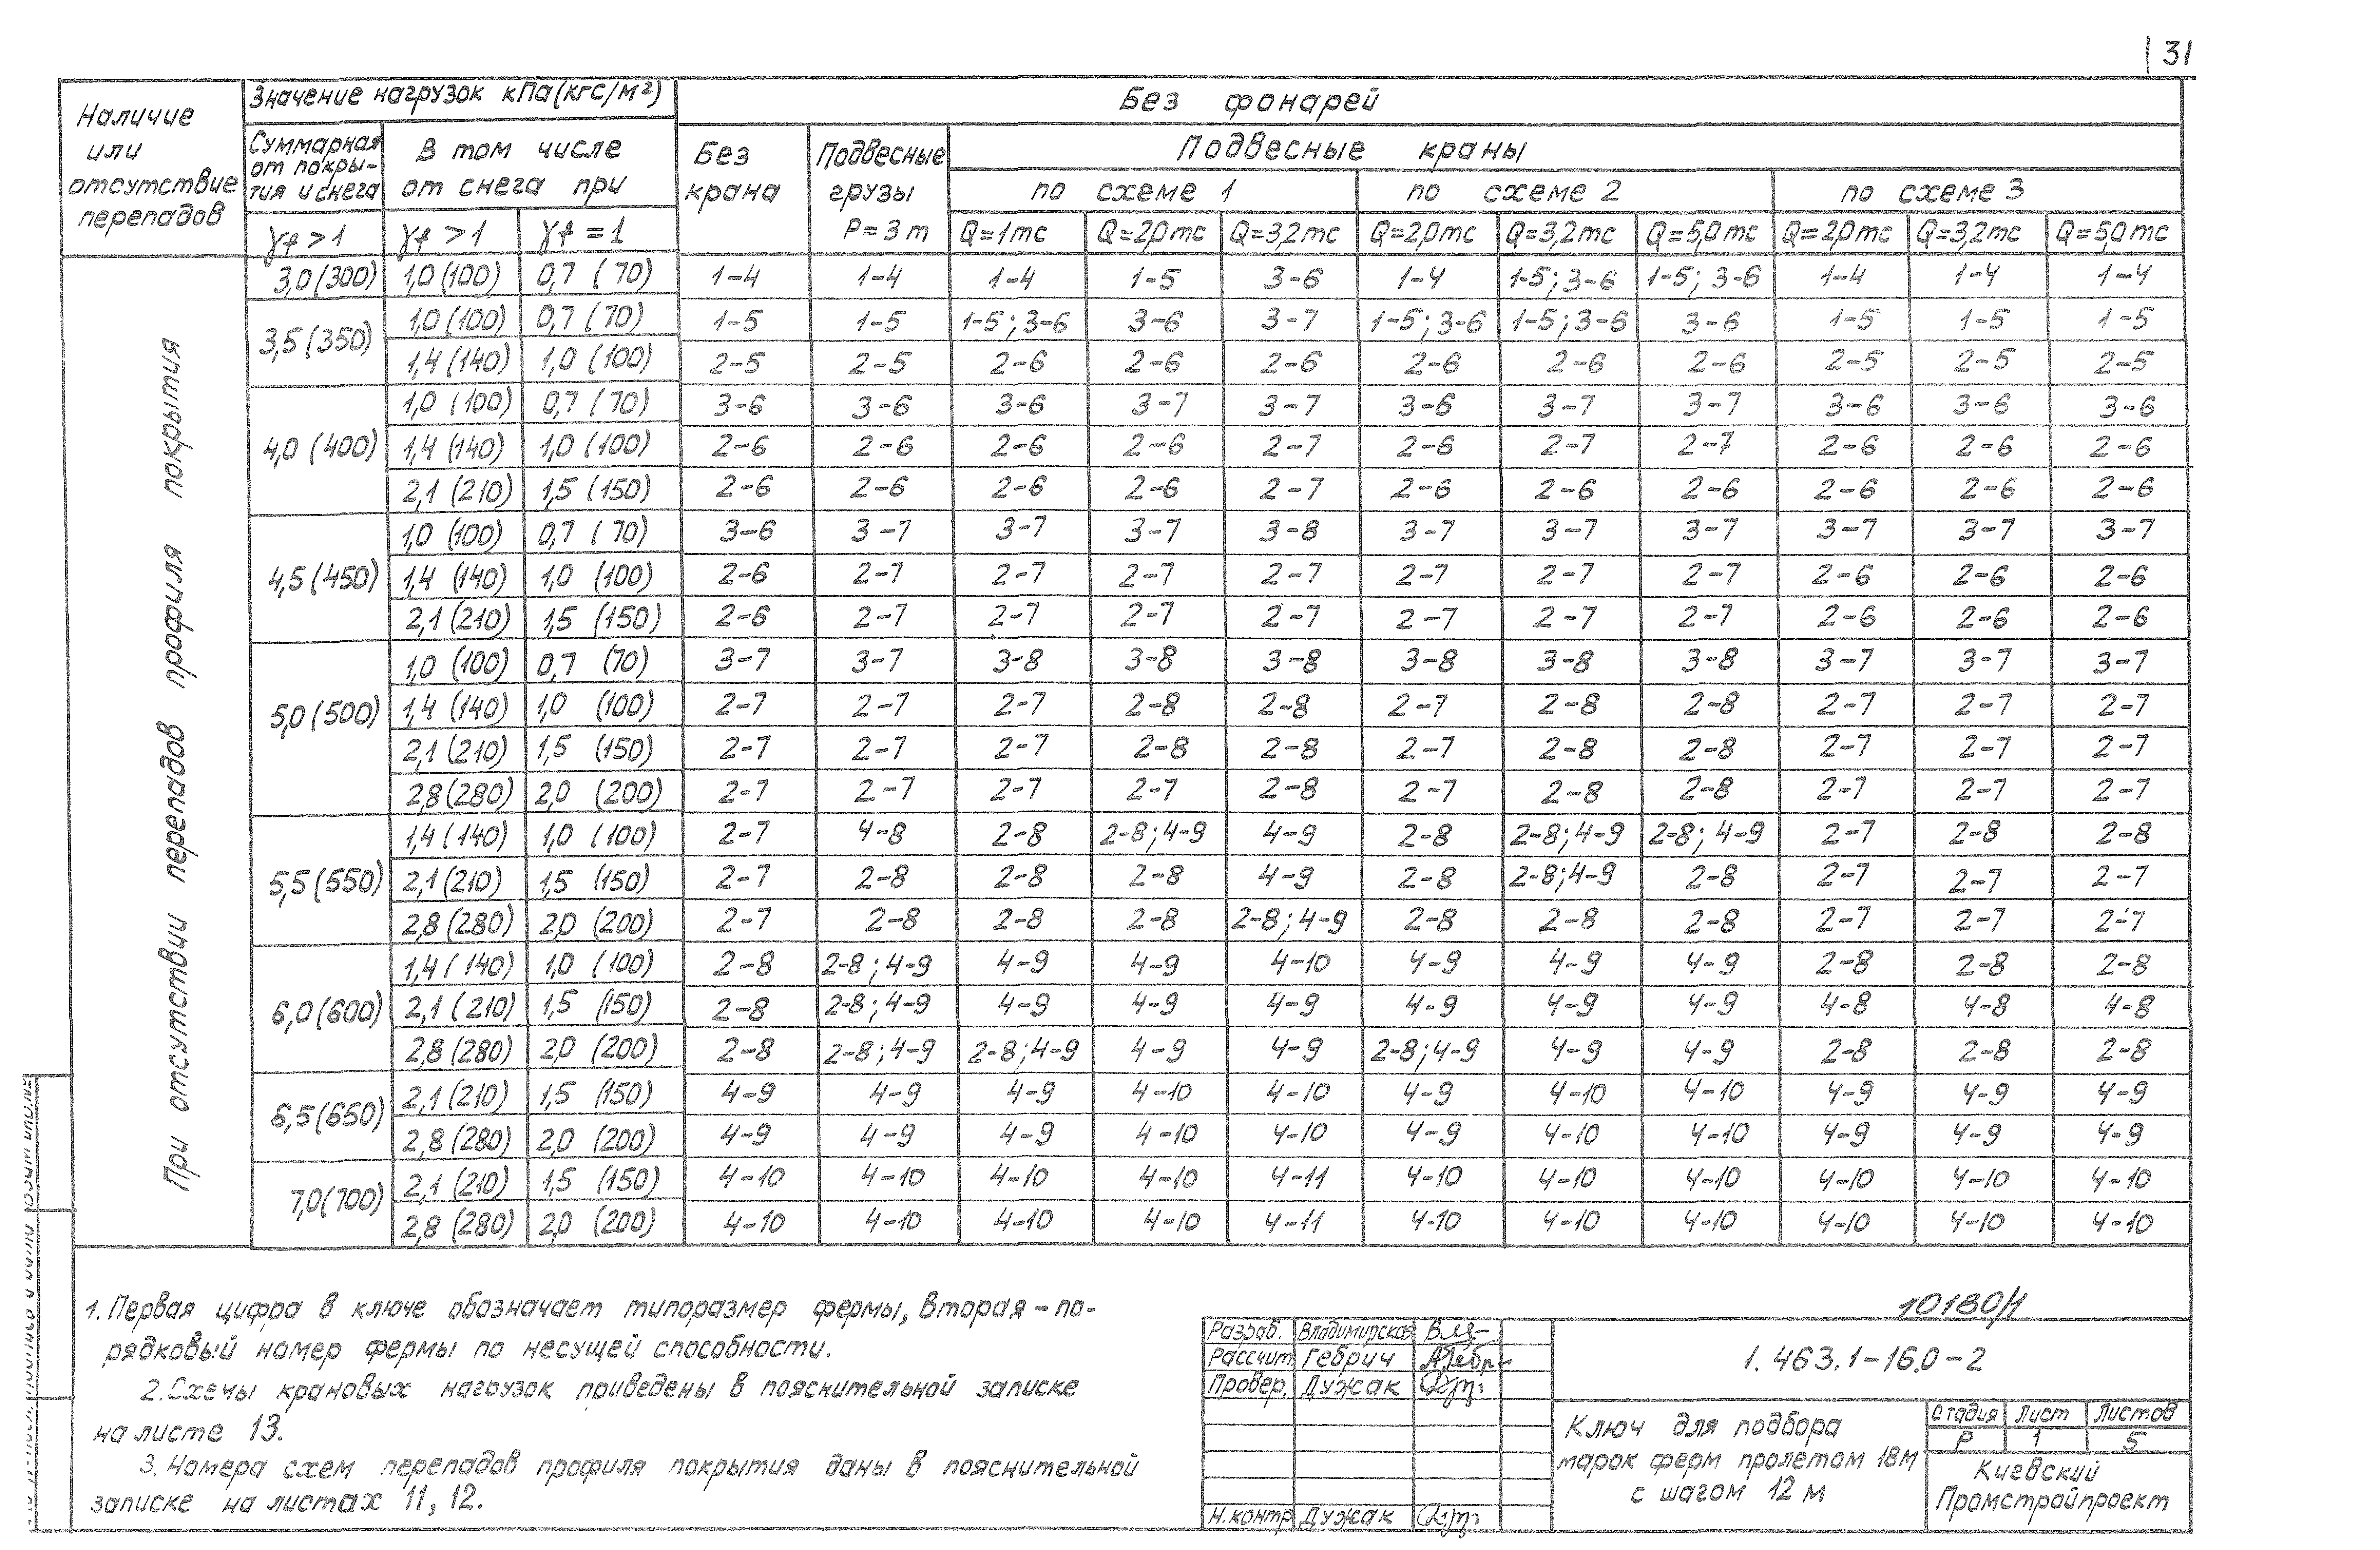 31
Наличие или отсутствие перепадов
Значение нагрузок кПа (кгс/м²)
Без фонарей
Суммарная от покры-тия и снега
В том числе от снега при
Без крана
Подвесные грузы P=3т
Подвесные краны
по схеме 1
по схеме 2
по схеме 3
γf >1 γf >1 γf =1
Q=1тс Q=2,0тс Q=3,2тс Q=2,0тс Q=3,2тс Q=5,0тс Q=2,0тс Q=3,2тс Q=5,0тс
При отсутствии перепадов профиля покрытия
3,0(300) 1,0(100) 0,7(70) 1-4 1-4 1-4 1-5 3-6 1-4 1-5;3-6 1-5;3-6 1-4 1-4 1-4
3,5(350) 1,0(100) 0,7(70) 1-5 1-5 1-5;3-6 3-6 3-7 1-5;3-6 1-5;3-6 3-6 1-5 1-5 1-5
1,4(140) 1,0(100) 2-5 2-5 2-6 2-6 2-6 2-6 2-6 2-6 2-5 2-5 2-5
4,0(400) 1,0(100) 0,7(70) 3-6 3-6 3-6 3-7 3-7 3-6 3-7 3-7 3-6 3-6 3-6
1,4(140) 1,0(100) 2-6 2-6 2-6 2-6 2-7 2-6 2-7 2-7 2-6 2-6 2-6
2,1(210) 1,5(150) 2-6 2-6 2-6 2-6 2-7 2-6 2-6 2-6 2-6 2-6 2-6
4,5(450) 1,0(100) 0,7(70) 3-6 3-7 3-7 3-7 3-8 3-7 3-7 3-7 3-7 3-7 3-7
1,4(140) 1,0(100) 2-6 2-7 2-7 2-7 2-7 2-7 2-7 2-7 2-6 2-6 2-6
2,1(210) 1,5(150) 2-6 2-7 2-7 2-7 2-7 2-7 2-7 2-7 2-6 2-6 2-6
5,0(500) 1,0(100) 0,7(70) 3-7 3-7 3-8 3-8 3-8 3-8 3-8 3-8 3-7 3-7 3-7
1,4(140) 1,0(100) 2-7 2-7 2-7 2-8 2-8 2-7 2-8 2-8 2-7 2-7 2-7
2,1(210) 1,5(150) 2-7 2-7 2-7 2-8 2-8 2-7 2-8 2-8 2-7 2-7 2-7
2,8(280) 2,0(200) 2-7 2-7 2-7 2-7 2-8 2-7 2-8 2-8 2-7 2-7 2-7
5,5(550) 1,4(140) 1,0(100) 2-7 4-8 2-8 2-8;4-9 4-9 2-8 2-8;4-9 2-8;4-9 2-7 2-8 2-8
2,1(210) 1,5(150) 2-7 2-8 2-8 2-8 4-9 2-8 2-8;4-9 2-8 2-7 2-7 2-7
2,8(280) 2,0(200) 2-7 2-8 2-8 2-8 2-8;4-9 2-8 2-8 2-8 2-7 2-7 2-7
6,0(600) 1,4(140) 1,0(100) 2-8 2-8;4-9 4-9 4-9 4-10 4-9 4-9 4-9 2-8 2-8 2-8
2,1(210) 1,5(150) 2-8 2-8;4-9 4-9 4-9 4-9 4-9 4-9 4-9 4-8 4-8 4-8
2,8(280) 2,0(200) 2-8 2-8;4-9 2-8;4-9 4-9 4-9 2-8;4-9 4-9 4-9 2-8 2-8 2-8
6,5(650) 2,1(210) 1,5(150) 4-9 4-9 4-9 4-10 4-10 4-9 4-10 4-10 4-9 4-9 4-9
2,8(280) 2,0(200) 4-9 4-9 4-9 4-10 4-10 4-9 4-10 4-10 4-9 4-9 4-9
7,0(700) 2,1(210) 1,5(150) 4-10 4-10 4-10 4-10 4-11 4-10 4-10 4-10 4-10 4-10 4-10
2,8(280) 2,0(200) 4-10 4-10 4-10 4-10 4-11 4-10 4-10 4-10 4-10 4-10 4-10
1. Первая цифра в ключе обозначает типоразмер фермы, вторая - по-
рядковый номер фермы по несущей способности.
2. Схемы крановых нагрузок приведены в пояснительной записке
на листе 13.
3. Номера схем перепадов профиля покрытия даны в пояснительной
записке на листах 11, 12.
10180/1
Разраб. Владимирская
Рассчит. Гебрич
Провер. Дужак
Н.контр. Дужак
1.463.1-16.0-2
Ключ для подбора
марок ферм пролетом 18м
с шагом 12 м
Стадия Лист Листов
Р 1 5
Киевский
Промстройпроект